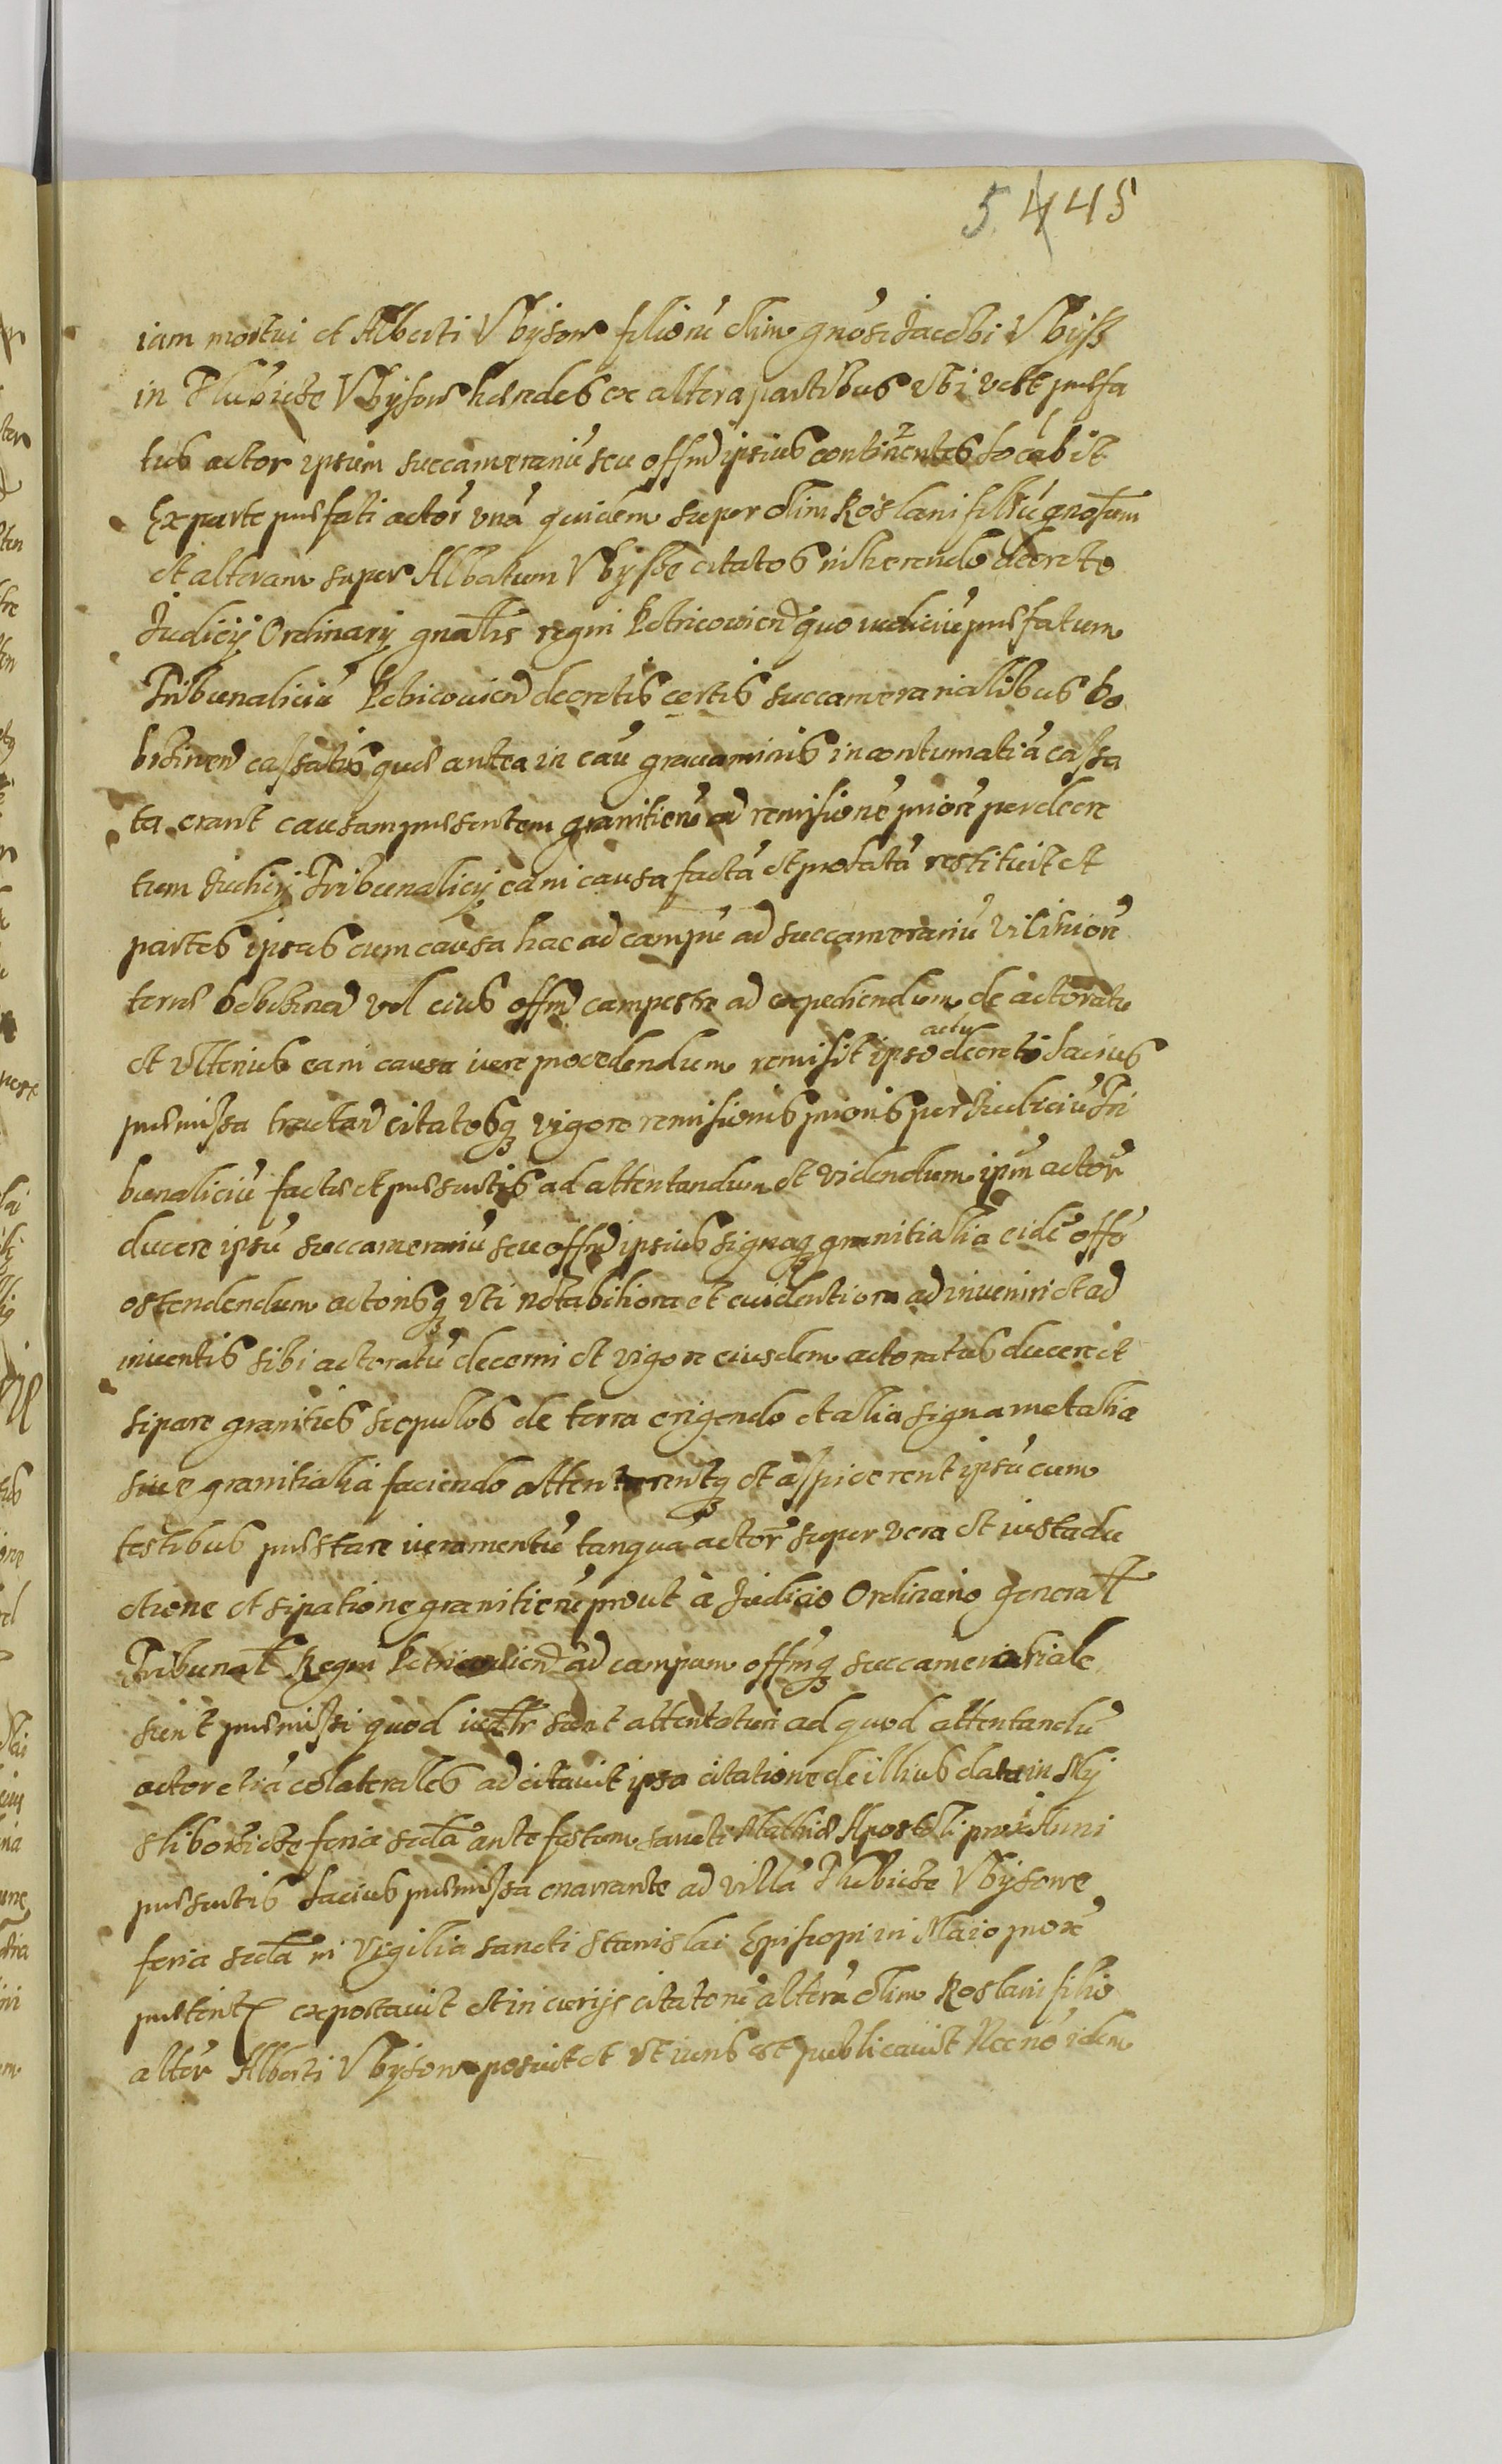 5 4 45
iam mortui et Alberti Vbÿsow filiorũ olim gnosi Jacobi Vbÿss
in Hlubicże Vbÿsow heredes ex altera partibus vbi velt præfa
tus actor ipsum succamerariũ seu offm̃ ipsius continentes locabit
Ex parte præfati actor̃ vnã quidem super olim Roslani filiũ gnosum
et alteram super Albertum Vbÿske citatos inherendo decreto
Judicij Ordinarÿ gnalis regni Petricovien̄ quo iudiciũ præfatum
Tribunaliciũ Petricovien̄ decretis certis succamerarialibus
cassatis quæ antea in cau gravaminis in contumatiã cassa
ta erant causam præsentem granitierũ ad remissionẽ priorẽ per decre
tum Judicij Tribunalicij eam causa factã et probatã restituit et
partes ipsas cum causa hac ad campũ ad succamerariũ
terræ vel eius offm̃ campestre ad expediendum de actoratu
et vlterius eam causa iure procedendum remisit ipso actu decreti lacius
præmissa tractan̄ citatosq3 vigore remisionis prioris per Judiciũ Tri
bunaliciũ factæ et præsentis ad attentandum et videndum ipm̃ actorẽ
ducere ipsũ succamerariũ seu offm̃ ipsius signaq3 granitialia eidẽ offo
ostendendum actorisq3 vti notabiliora et evidentiora adinveniri et ad
inventis sibi actoratũ decerni et vigore eiusdem actoratus ducere et
sipare granities scopulos de terra erigendo et alia signa metalia
sive granitialia faciendo attentarentq3 et aspicerent ipsũ cum
testibus præstare iuramentũ tanquã actor̃ super vera et iusta du
ctione et sipatione granitierũ prout à Judicio Ordinario general
Tribunal Regni Petricovien̄ ad campum offm̃q3 succamerariale
sunt præmissi quod sunt attentaturi ad quod attentandũ
actor etiã colaterales adcitavit ipsa citatione de illius data in
feria scda ante festum sancti Mathiæ Apostoli proximi
præsentis lacius præmissa enarrante ad villã Hlubicże Vbÿsowe
feria scda in Vigilia sancti Stanislai Episcopi in Maio prox
præterit exportavit et in curijs citatorũ alterã olim Roslani filio
alter̃ Alberti Vbÿsow posuit et vt iuris est publicavit Necnõ idem